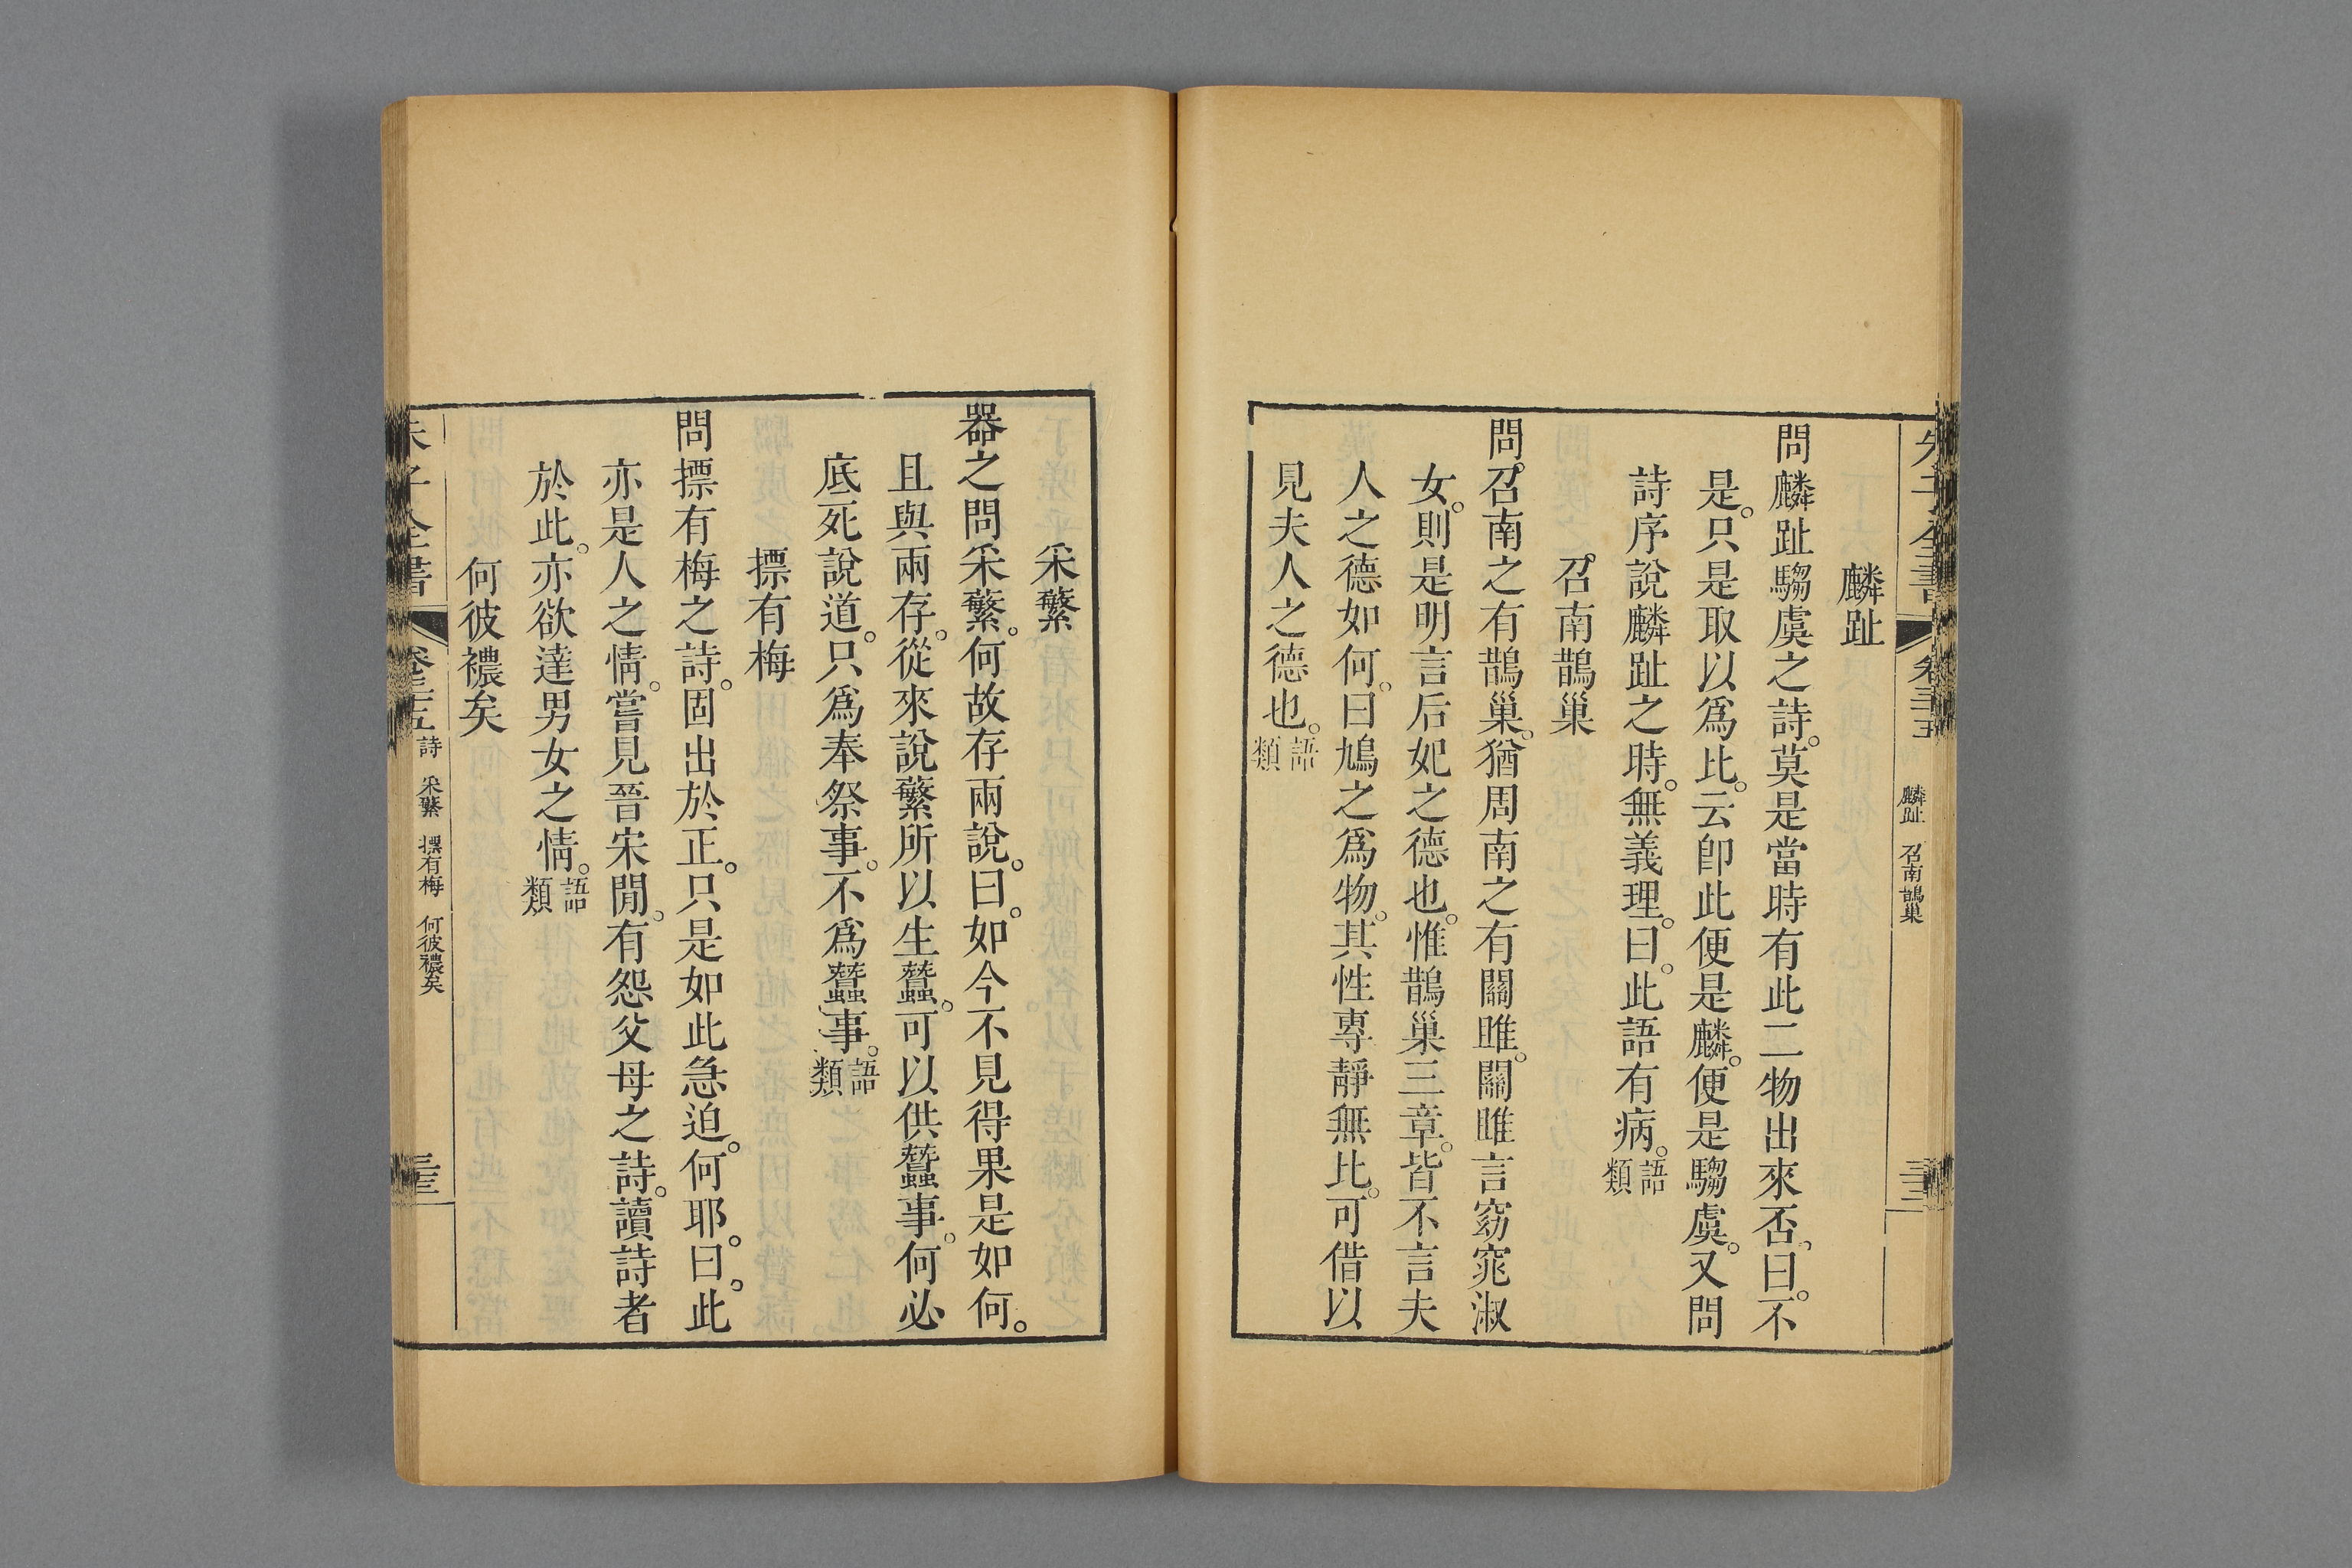 麟趾
問麟趾騶虞之詩。莫是當時有此二物出來否。曰。不
是。只是取以爲比。云卽此便是麟。便是騶虞。又問
詩序說麟趾之時。無義理。曰。此語有病。語類
召南鵲巢
問。召南之有鵲巢。猶周南之有關雎。關雎言窈窕淑
女。則是明言后妃之德也。惟鵲巢三章。皆不言夫
人之德如何。曰。鳩之爲物。其性專靜無比。可借以
見夫人之德也。語類
麟趾 召南鵲巢
采蘩
器之問采蘩。何故存兩說。曰。如今不見得果是如何。
且與兩存。從來說蘩所以生蠶。可以供蠶事。何必
底死說道。只爲奉祭事。不爲蠶事。語類
摽有梅
問摽有梅之詩。固出於正。只是如此急迫。何耶。曰。此
亦是人之情。嘗見晉宋閒。有怨父母之詩。讀詩者
於此。亦欲達男女之情。語類
何彼襛矣
朱子全書 卷三十五 詩 采蘩 摽有梅 何彼襛矣